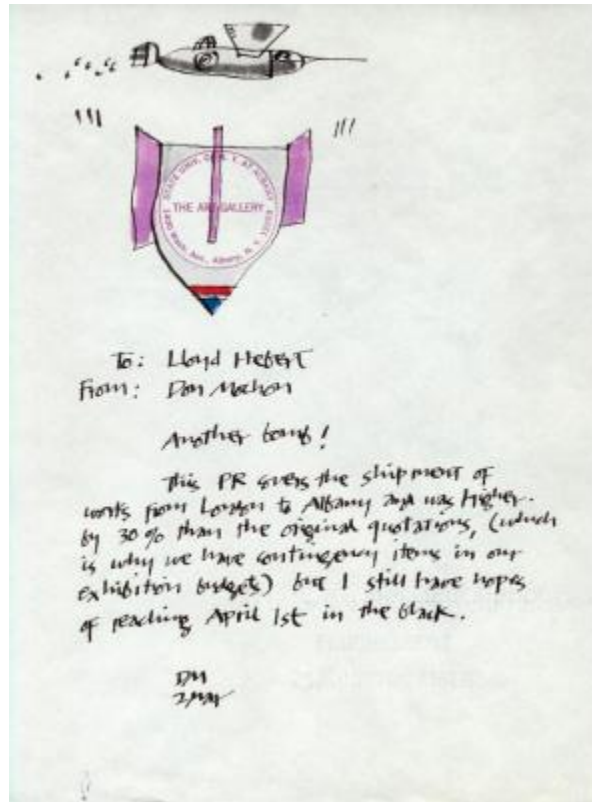 STATE UNIV. OF N. Y. AT ALBANY
THE ART GALLERY
1400 Wash. Ave., Albany, N. Y.
To: Lloyd Hebert
From: Don Mochon
Another bomb!
This PR covers the shipment of
works from London to Albany and was higher.
by 30% than the original quotations, (which
is why we have contingency items in our
exhibition budgets) but I still have hopes
of reaching April 1st in the black.
DM
2 MAR